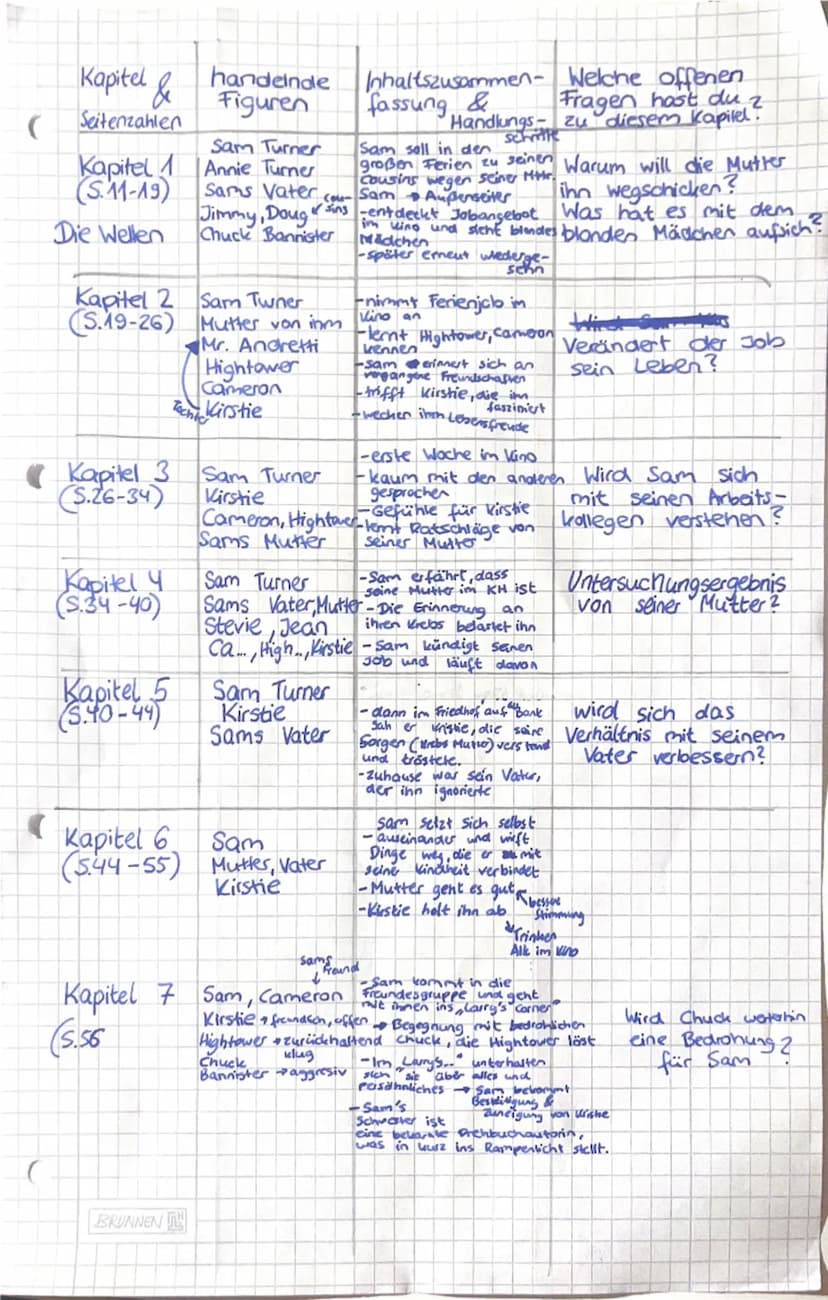 Kapitel & Seitenzahlen
handelnde Figuren
Inhaltszusammen-
fassung & Handlungs-
schritte
Welche offenen
Fragen hast du
zu diesem Kapitel?
Kapitel 1
(S.11-19)
Die Wellen
Sam Turner
Annie Turner
Sams Vater
Jimmy, Doug cou-
sins
Chuck Bannister
Sam soll in den
großen Ferien zu seinen
Cousins wegen seiner Mttr.
Sam → Außenseiter
-entdeckt Jobangebot
im Kino und sieht blondes
Mädchen
-später erneut wiederge-
sehn
Warum will die Mutter
ihn wegschicken?
Was hat es mit dem
blonden Mädchen aufsich?
Kapitel 2
(S.19-26)
Sam Turner
Mutter von ihm
Mr. Andretti
Hightower
Cameron
Kirstie
Tochter
-nimmt Ferienjob im
Kino an
-lernt Hightower, Cameron
kennen
-Sam erinnert sich an
vergangene Freundschaften
-trifft Kirstie, die ihn
fasziniert
-wecken ihm Lebensfreude
Verändert der Job
sein Leben?
Kapitel 3
(S.26-34)
Sam Turner
Kirstie
Cameron, Hightower
Sams Mutter
-erste Woche im Kino
-kaum mit den anderen
gesprochen
-Gefühle für Kirstie
-lernt Ratschläge von
seiner Mutter
Wird Sam sich
mit seinen Arbeits-
kollegen verstehen?
Kapitel 4
(S.34-40)
Sam Turner
Sams Vater, Mutter
Stevie, Jean
Ca..., High.., Kirstie
-Sam erfährt, dass
seine Mutter im KH ist
-Die Erinnerung an
ihren Krebs belastet ihn
-Sam kündigt seinen
Job und läuft davon
Untersuchungsergebnis
von seiner Mutter?
Kapitel 5
(S.40-44)
Sam Turner
Kirstie
Sams Vater
-dann im Friedhof auf Bank
sah er Kristie, die seine
Sorgen (Krebs Mutter) verstand
und tröstete.
-zuhause war sein Vater,
der ihn ignorierte
wird sich das
Verhältnis mit seinem
Vater verbessern?
Kapitel 6
(S.44-55)
Sam
Mutter, Vater
Kirstie
Sam setzt sich selbst
- auseinander und wirft
Dinge weg, die er mit
seine Kindheit verbindet
-Mutter geht es gut
bessere
Stimmung
-Kirstie holt ihn ab
Trinken
Alk im Kino
Kapitel 7
(S.56
Sams
Freund
Sam, Cameron
Kirstie → freundsch, offen
Hightower → zurückhaltend
klug
Chuck
Bannister → aggresiv
-Sam kommt in die
Freundesgruppe und geht
mit ihnen ins „Larry's Corner"
→ Begegnung mit bedrohlichen
Chuck, die Hightower löst
-Im „Larrys.." unterhalten
sich sie über alles und
persöhnliches → Sam bekommt
Bestätigung &
Zuneigung von Kirstie
-Sam's
Schwester ist
eine bekannte Drehbuchautorin,
was in kurz ins Rampenlicht stellt.
Wird Chuck weiterhin
eine Bedrohung
für Sam?
BRUNNEN